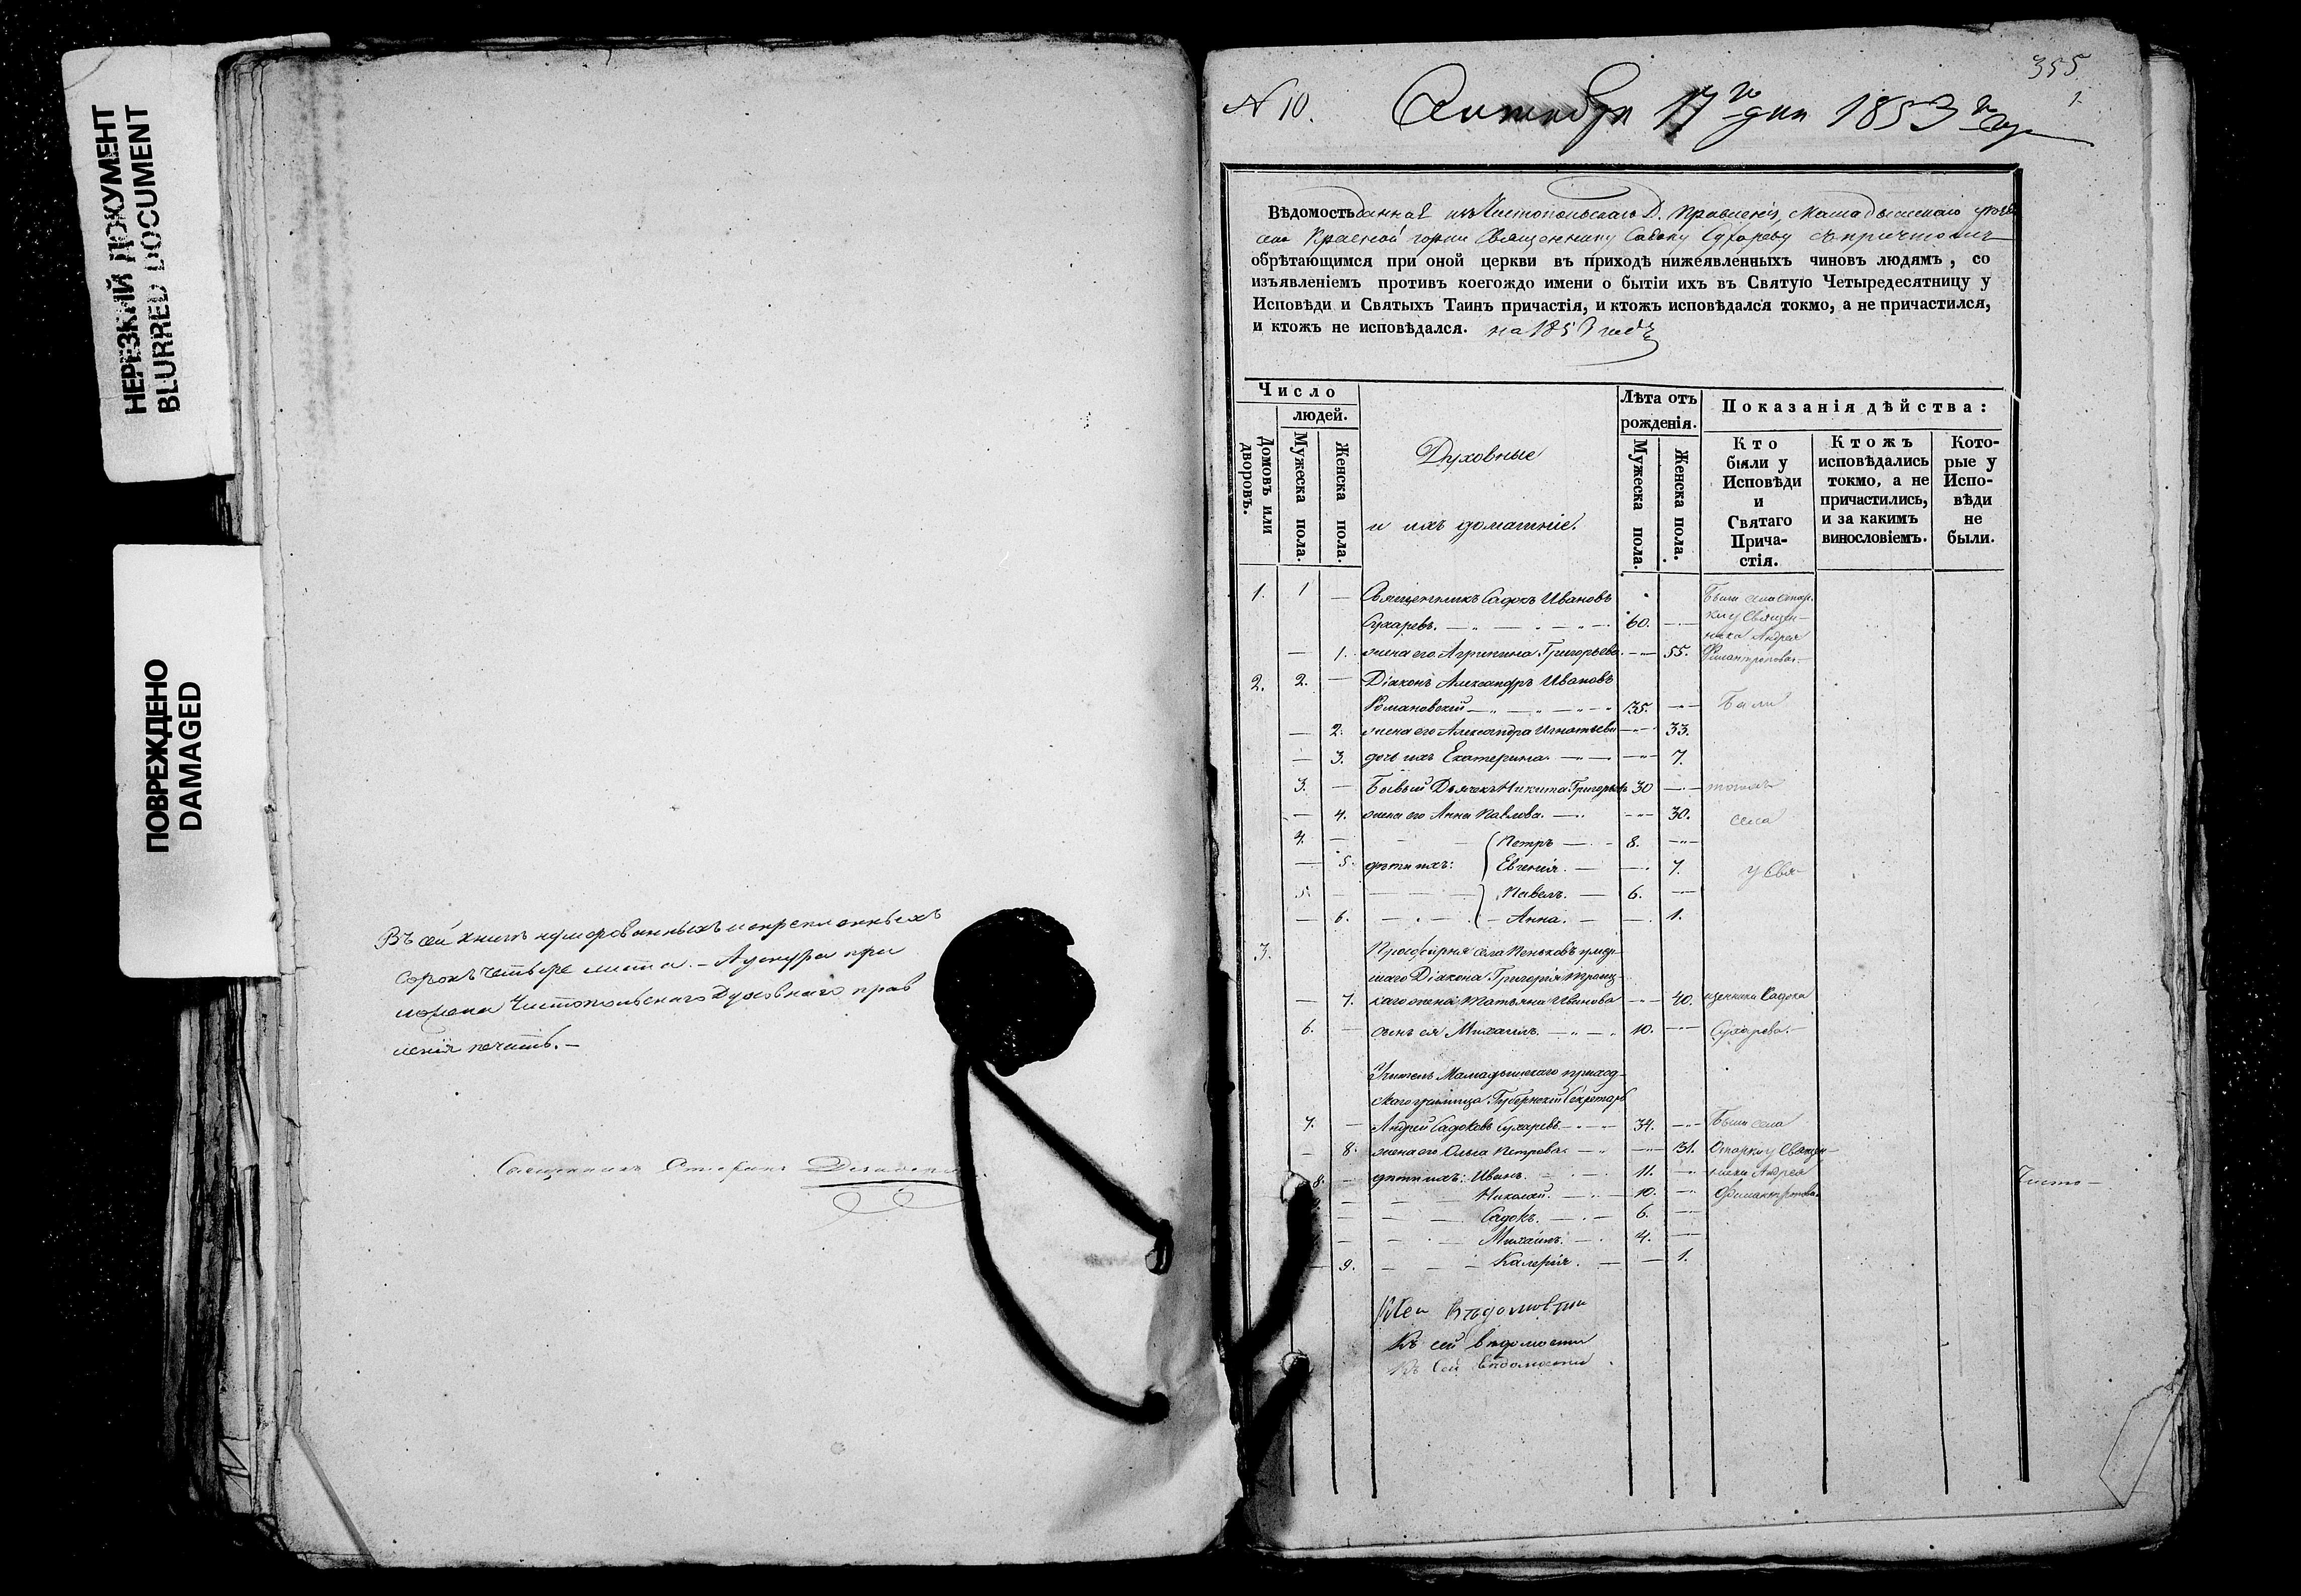 НЕРЕЗКИЙ ДОКУМЕНТ
BLURRED DOCUMENT
ПОВРЕЖДЕНО
DAMAGED
Въ сей книгѣ нумерованныхъ и скрепленныхъ
сорокъ четыре листа. – А у снура при
ложена Чистопольскаго Духовнаго прав
ленія печать. –
Священникъ Стефанъ
355
1.
N 10.
17 го дня 1853 года
Вѣдомость данная изъ Чистопольскаго Д. Правленія, Мамадышскаго уѣзда
села Красной горки Священнику Садоку Сухареву съ причтомъ
обрѣтающимся при оной церкви въ приходѣ нижеявленныхъ чиновъ людямъ, со
изъявленіемъ противъ коегождо имени о бытіи ихъ въ Святую Четыредесятницу у
Исповѣди и Святыхъ Таинъ причастія, и ктожъ исповѣдался токмо, а не причастился,
и ктожъ не исповѣдался. на 1853 годъ
Число
людей.
Домовъ или дворовъ.
Мужеска пола.
Женска пола.
Духовные
и ихъ домашніе.
Лѣта отъ
рожденія.
Мужеска пола.
Женска пола.
Показанія дѣйства:
Кто
были у
Исповѣди
и
Святаго
Прича-
стія.
Ктожъ
исповѣдались
токмо, а не
причастились,
и за какимъ
винословіемъ.
Кото-
рые у
Испо-
вѣди
не
были.
1. 1 — Священникъ Садокъ Ивановъ
Сухаревъ. 60.
— 1. жена его Агрипина Григорьева 55.
Были села Отар-
ки у Священ-
ника Андрея
Филантропова. –
2. 2. — Діаконъ Александръ Ивановъ
Романовскій 35. Были
— 2. жена его Александра Игнатьева 33.
— 3. дочь ихъ Екатерина. 7.
3. — Бывый Дьячекъ Никита Григорьевъ 30 — тогожъ
— 4. жена его Анна Павлова. 30. села
4. — Петръ 8.
— 5. дѣти ихъ: Евгенія. 7. у Свя-
5. — Павелъ. 6.
— 6. Анна. 1.
3. Просфирня села Пеньковъ умер-
шаго Діакона Григорія Троиц-
— 7. каго жена Татьяна Иванова 40. щенника Садока
6. — сынъ ея Михаилъ. 10. Сухарева. –
Учитель Мамадышскаго приход-
скаго училища Губернскій Секретарь
7. — Андрей Садоковъ Сухаревъ 34. Были села
— 8. жена его Ольга Петрова. 31. Отарки у Священ-
8. — дѣти ихъ: Иванъ. 11. ника Андрея
Николай. 10. Филантропова.
Садокъ. 6.
Михаилъ. 4.
9. Калерія. 1.
Къ сей вѣдомости
Къ сей вѣдомости
Чисто-